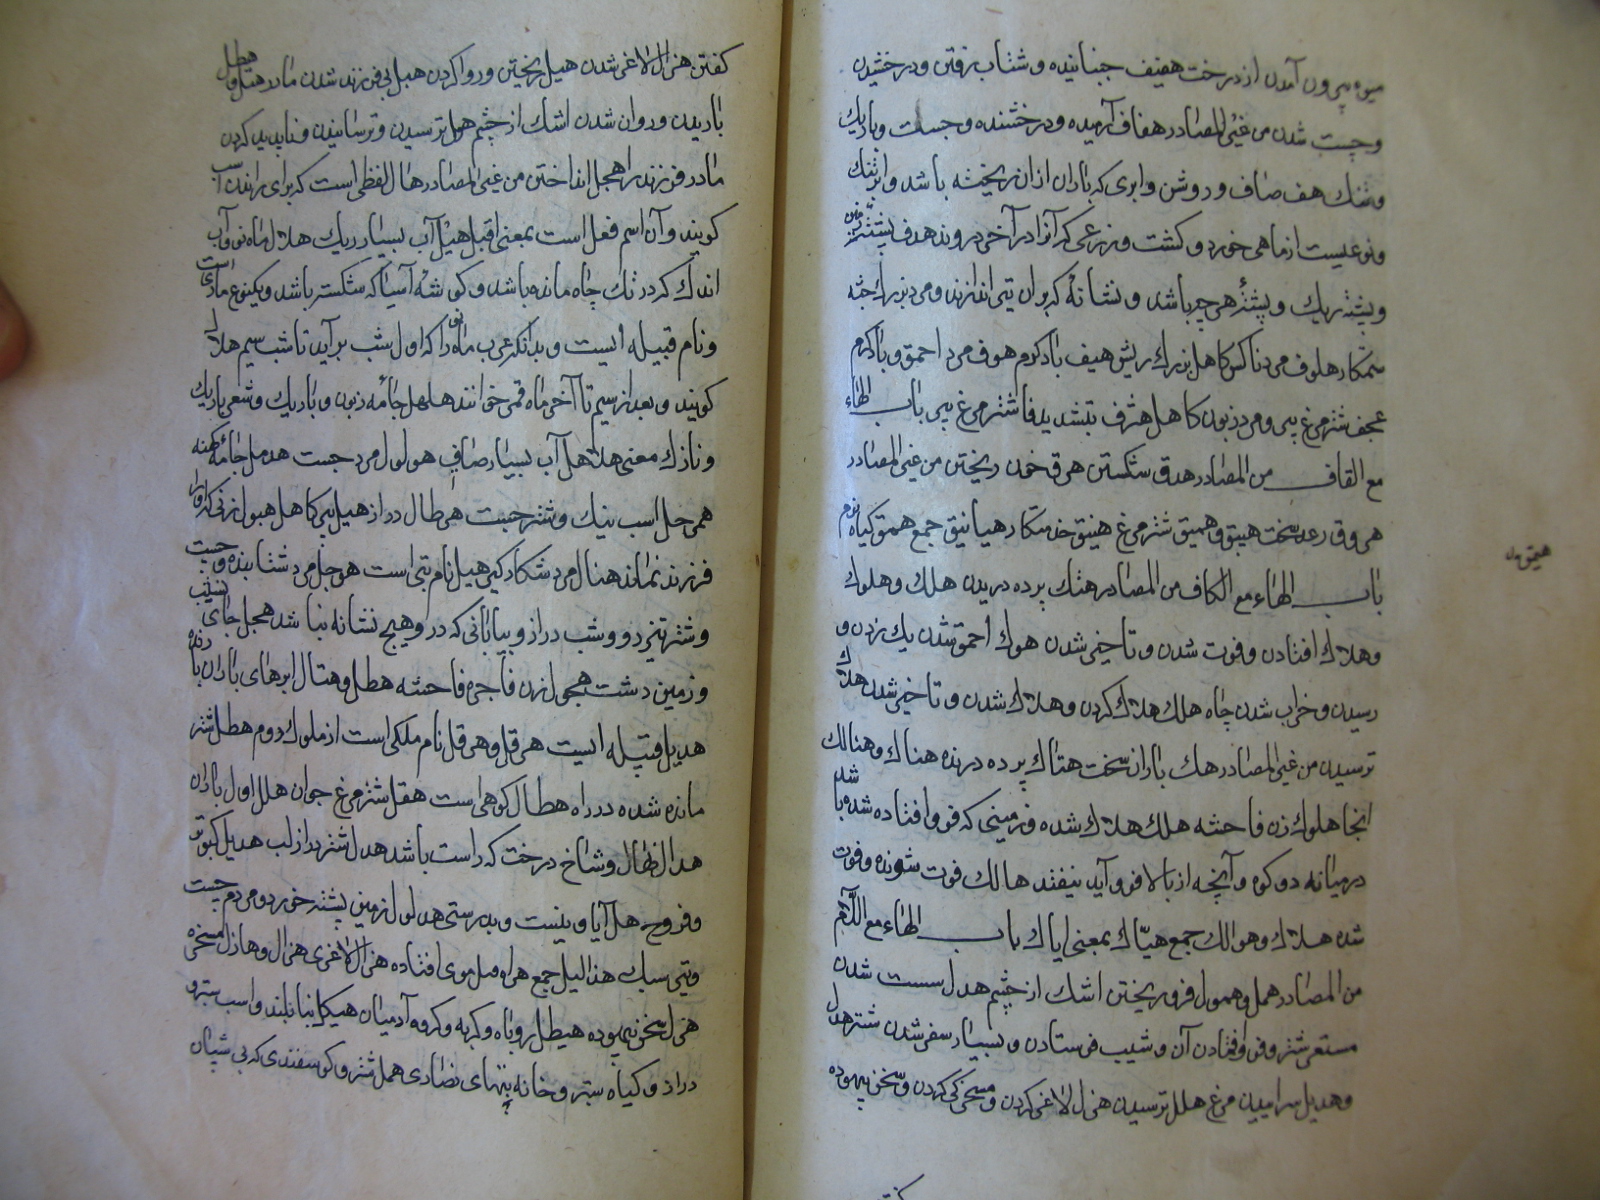 میوه بیرون آمدن از درخت هفیف جنبانیده و شتاب رفتن و درخشیدن
و چست شدن من غیر المصادر هفاف آرمیده و درخشنده و جست و باریک
و تنک هف صاف و روشن و ابری که باران ازان ریخته باشد و ابر تنک
و نوعیست از ماهی خورد و کشت و زرعی که آنرا در آخر دروند هدف پشته
و پشته ریک و پشته هر چیز باشد و نشانهٔ که بران تیر اندازند و مرد بزرک جثه
ستمکار هلوف مرد ناکس کاهل بزرك ریش هیف باد کرم هوف مرد احمق و باد کرم
هجف شترمرغ پیر و مرد زبون کاهل هزف بتشدید فا شترمرغ پیر باب الهاء
مع القاف من المصادر هدق شکستن هرق خون ریختن من غیر المصادر
رعد سخت هیق و همیق شترمرغ هینق جمع همق کیاه نرم
باب الهاء مع الکاف من المصادر هتك پرده دریدن هلك و هلوك
و هلاك افتادن و فوت شدن و تاخیر شدن هوك احمق شدن يك زدن و
رسیدن و خراب شدن چاه هلك هلاك کردن و هلاك شدن و تاخیر شدن هلاك
ترسیدن من غیر المصادر هك باران سخت هتاك پرده درنده هناك و هنالك
آنجا هلوك زن فاحشه هلك هلاك شده و زمینی که فرو افتاده شده باشد
در میانه دو کوه و آنچه از بالا فرو آید بیفتد هالك فوت شونده و فوت
شده هلاك و هوالك جمع هیاك بمعنی ایاك باب الهاء مع اللام
من المصادر همل و همول فرو ریختن اشك از چشم هدل سست شدن
مشفر شتر و فرو افتادن آن و شیب فرستادن و بسیار سفر شدن شتر هدل
و هدیل سراییدن مرغ هلل ترسیدن هزل لاغر کردن و مسخرکی کردن و سخن بیهوده
همیق من
کفتن هزال لاغر شدن هیل ریختن و روا کردن هبل بی فرزند شدن مادر هتل و هطل
باریدن و روان شدن اشك از چشم هول ترسیدن و ترسانیدن و ناپدید کردن
مادر فرزند را هجل انداختن من غیر المصادر هال لفظی است که برای راندن اسب
کویند و آن اسم فعل است بمعنی اقبل هیل آب بسیار ریك هلال ماه نو و آب
اندك که در تك چاه مانده باشد و کوشهٔ آسیا که شکسته باشد و یکنوع ماریست
و نام قبیله ایست و بدانکه عرب ماه نو را که اول شب برآید تا شب سیم هلال
کویند و بعد از سیم تا آخر ماه قمر خوانند هلهل جامه زبون و باریك و شعر باریك
و نازك معنی هلاهل آب بسیار صافی هولول مرد جست هدمل جامهٔ کهنه
همرجل اسب نیك و شتر جست هرطال دراز هیل پیر کاهل هبول زنی که او را
فرزند نماند هنال مرد شکار کیر هبل نام بتی است هوجل مرد شتابنده و چست
و شتر تیزرو و شب دراز و بیابانی که درو هیچ نشانه نباشد هجل جای نشیب
و زمین دشت هجول زن فاجره فاحشه هطل و هتال ابرهای باران بارنده
هذیل قبیله ایست هرقل و هرقل نام ملکی است از ملوك روم هطل شتر
مانده شده در راه هطال کوهی است هقل شترمرغ جوان هلل اول باران
هدال نهال و شاخ درخت که راست باشد هدل شتر دراز لب هدیل کبوتر
و فروج هل آیا و نیست و بدرستی هذلول زمین پشته خورد و مردم چست
و تیر سبك هذالیل جمع هرامیل موی افتاده هزال لاغری هزال و هازل مسخره
هزل سخن بیهوده هیطل روباه و کربه و کروه آدمیان هیکل بنا بلند و اسب ستبر و
دراز و کیاه ستبر و خانه بتهای نصاری همل شتر و کوسفندی که بی شبان
کفتن